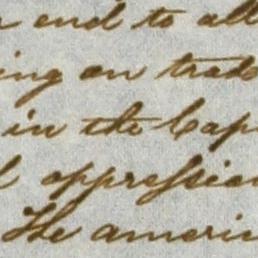 end to all
ing on trade
in the Cap
oppression
The americ